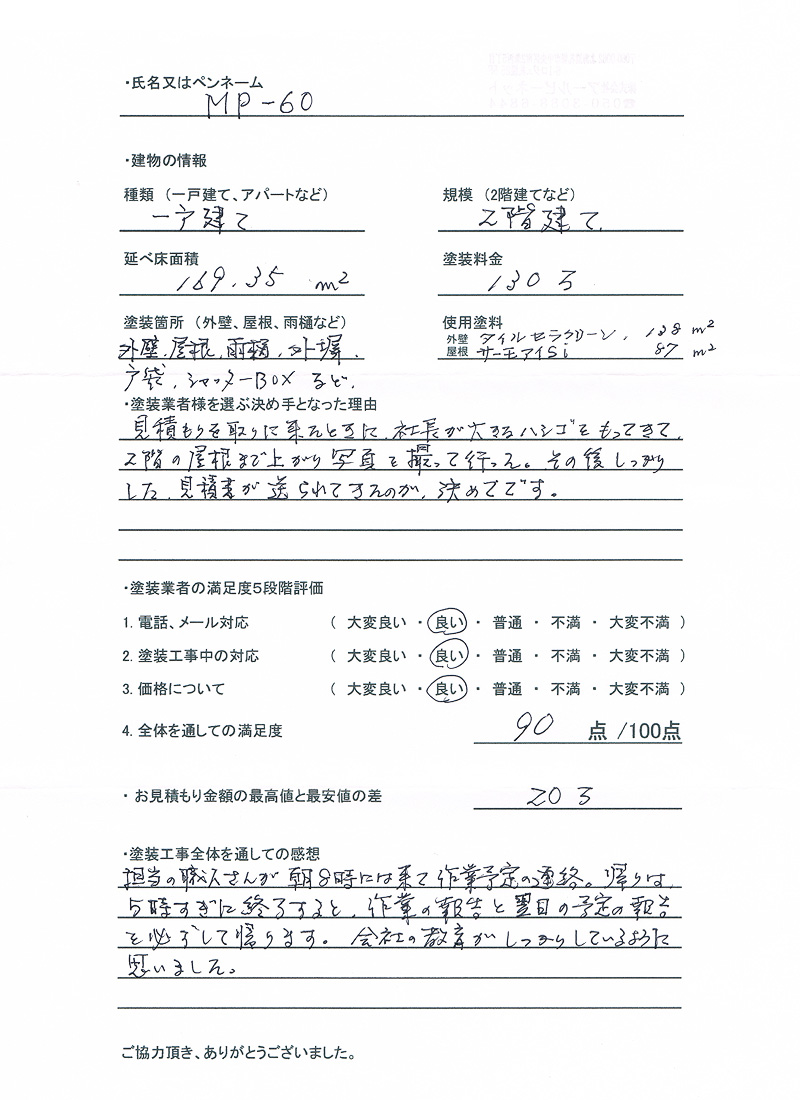 ・氏名又はペンネーム
MP-60
・建物の情報
種類 （一戸建て、アパートなど）
一戸建て
規模 （2階建てなど）
2階建て
延べ床面積
169.35 m²
塗装料金
130万
塗装箇所 （外壁、屋根、雨樋など）
外壁、屋根、雨樋、外塀、
戸袋、シャッターBOXなど、
使用塗料
外壁 タイルセラクリーン、 138 m²
屋根 サーモアイSi 87 m²
・塗装業者様を選ぶ決め手となった理由
見積もりを取りに来たときに、社長が大きなハシゴをもってきて、
2階の屋根まで上がり写真を撮って行った。その後しっかり
した、見積書が送られてきたのが、決めてです。
・塗装業者の満足度5段階評価
1. 電話、メール対応 （ 大変良い ・ 良い ・ 普通 ・ 不満 ・ 大変不満 ）
2. 塗装工事中の対応 （ 大変良い ・ 良い ・ 普通 ・ 不満 ・ 大変不満 ）
3. 価格について （ 大変良い ・ 良い ・ 普通 ・ 不満 ・ 大変不満 ）
4. 全体を通しての満足度 90 点 /100点
・ お見積もり金額の最高値と最安値の差 20万
・塗装工事全体を通しての感想
担当の職人さんが朝8時には来て作業予定の連絡。帰りは、
5時すぎに終了すると、作業の報告と翌日の予定の報告
を必ずして帰ります。会社の教育がしっかりしているように
思いました。
ご協力頂き、ありがとうございました。